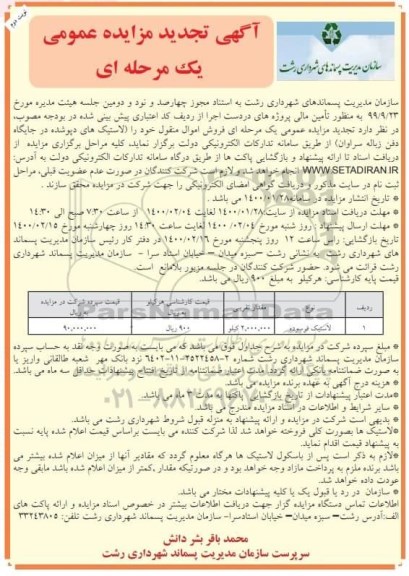 نوبت دوم
آگهی تجدید مزایده عمومی
یک مرحله ای
سازمان مدیریت پسماندهای شهرداری رشت
سازمان مدیریت پسماندهای شهرداری رشت به استناد مجوز چهارصد و نود و دومین جلسه هیئت مدیره مورخ
۹۹/۹/۲۳ به منظور تأمین مالی پروژه های دردست اجرا از ردیف کد اعتباری پیش بینی شده در بودجه مصوب،
در نظر دارد تجدید مزایده عمومی یک مرحله ای فروش اموال منقول خود را (لاستیک های دپوشده در جایگاه
دفن زباله سراوان) از طریق سامانه تدارکات الکترونیکی دولت برگزار نماید، کلیه مراحل برگزاری مزایده از
دریافت اسناد تا ارائه پیشنهاد و بازگشایی پاکت ها از طریق درگاه سامانه تدارکات الکترونیکی دولت به آدرس:
WWW.SETADIRAN.IR انجام خواهد شد و لازم است شرکت کنندگان در صورت عدم عضویت قبلی، مراحل
ثبت نام در سایت مذکور و دریافت گواهی امضای الکترونیکی را جهت شرکت در مزایده محقق سازند.
* تاریخ انتشار مزایده در سامانه ۱۴۰۰/۰۱/۲۸ می باشد.
* مهلت دریافت اسناد مزایده از سایت: ۱۴۰۰/۰۱/۲۸ لغایت ۱۴۰۰/۰۲/۰۴ از ساعت ۷:۳۰ صبح الی ۱۴:۳۰
* مهلت ارسال پیشنهاد: روز شنبه مورخ ۱۴۰۰/۰۲/۰۴ لغایت ساعت ۱۴:۳۰ روز چهارشنبه مورخ ۱۴۰۰/۰۲/۱۵
تاریخ بازگشایی: راس ساعت ۱۲ روز پنجشنبه مورخ ۱۴۰۰/۰۲/۱۶ در دفتر کار رئیس سازمان مدیریت پسماند
های شهرداری رشت به نشانی رشت – سبزه میدان – خیابان استاد سرا – سازمان مدیریت پسماندهای شهرداری
رشت قرائت می شود. حضور شرکت کنندگان در جلسه مزبور بلامانع است.
قیمت پایه کارشناسی: هرکیلو به مبلغ ۹۰۰ ریال می باشد.
ردیف نوع مقدار تقریبی قیمت کارشناسی هرکیلو به ریال قیمت سپرده شرکت در مزایده به ریال
۱ لاستیک فرسوده ۲,۰۰۰,۰۰۰ کیلو ۹۰۰ ریال ۹۰,۰۰۰,۰۰۰
* مبلغ سپرده شرکت در مزایده به شرح جدول فوق می باشد که می بایست به صورت وجه نقد به حساب سپرده
سازمان مدیریت پسماند شهرداری رشت شماره ۲–۳۵۲۲۴۵۸–۱۱–۶۴۰۲ نزد بانک مهر شعبه طالقانی واریز یا
به صورت ضمانتنامه بانکی ارائه گردد. مدت اعتبار ضمانتنامه از تاریخ افتتاح پیشنهادات حداقل سه ماه می باشد.
* هزینه درج آگهی به عهده برنده مزایده می باشد.
* مدت اعتبار پیشنهادات از تاریخ بازگشایی پاکتها به مدت ۳ ماه می باشد.
* سایر شرایط و اطلاعات در اسناد مزایده مندرج می باشد.
* بدیهی است شرکت در مزایده و ارائه پیشنهاد به منزله قبول شروط شهرداری رشت می باشد.
*لاستیک ها بصورت کلی فروخته خواهد شد لذا شرکت کننده می بایست براساس قیمت اعلام شده پایه نسبت
به پیشنهاد قیمت اقدام نماید.
*لازم به ذکر است پس از باسکول لاستیک ها هرگاه معلوم گردد که مقادیر آنها از میزان اعلام شده بیشتر می
باشد برنده ملزم به پرداخت مازاد وجه خواهد بود و در صورتیکه مقدار، کمتر از میزان اعلام شده باشد مابقی وجه
عودت داده خواهد شد.
* سازمان در رد یا قبول یک یا کلیه پیشنهادات مختار می باشد.
اطلاعات تماس دستگاه مزایده گزار جهت دریافت اطلاعات بیشتر در خصوص اسناد مزایده و ارائه پاکت های
الف:آدرس رشت– سبزه میدان– خیابان استادسرا– سازمان مدیریت پسماند شهرداری رشت تلفن: ۳۳۲۴۳۸۰۵
محمد باقر بشر دانش
سرپرست سازمان مدیریت پسماند شهرداری رشت